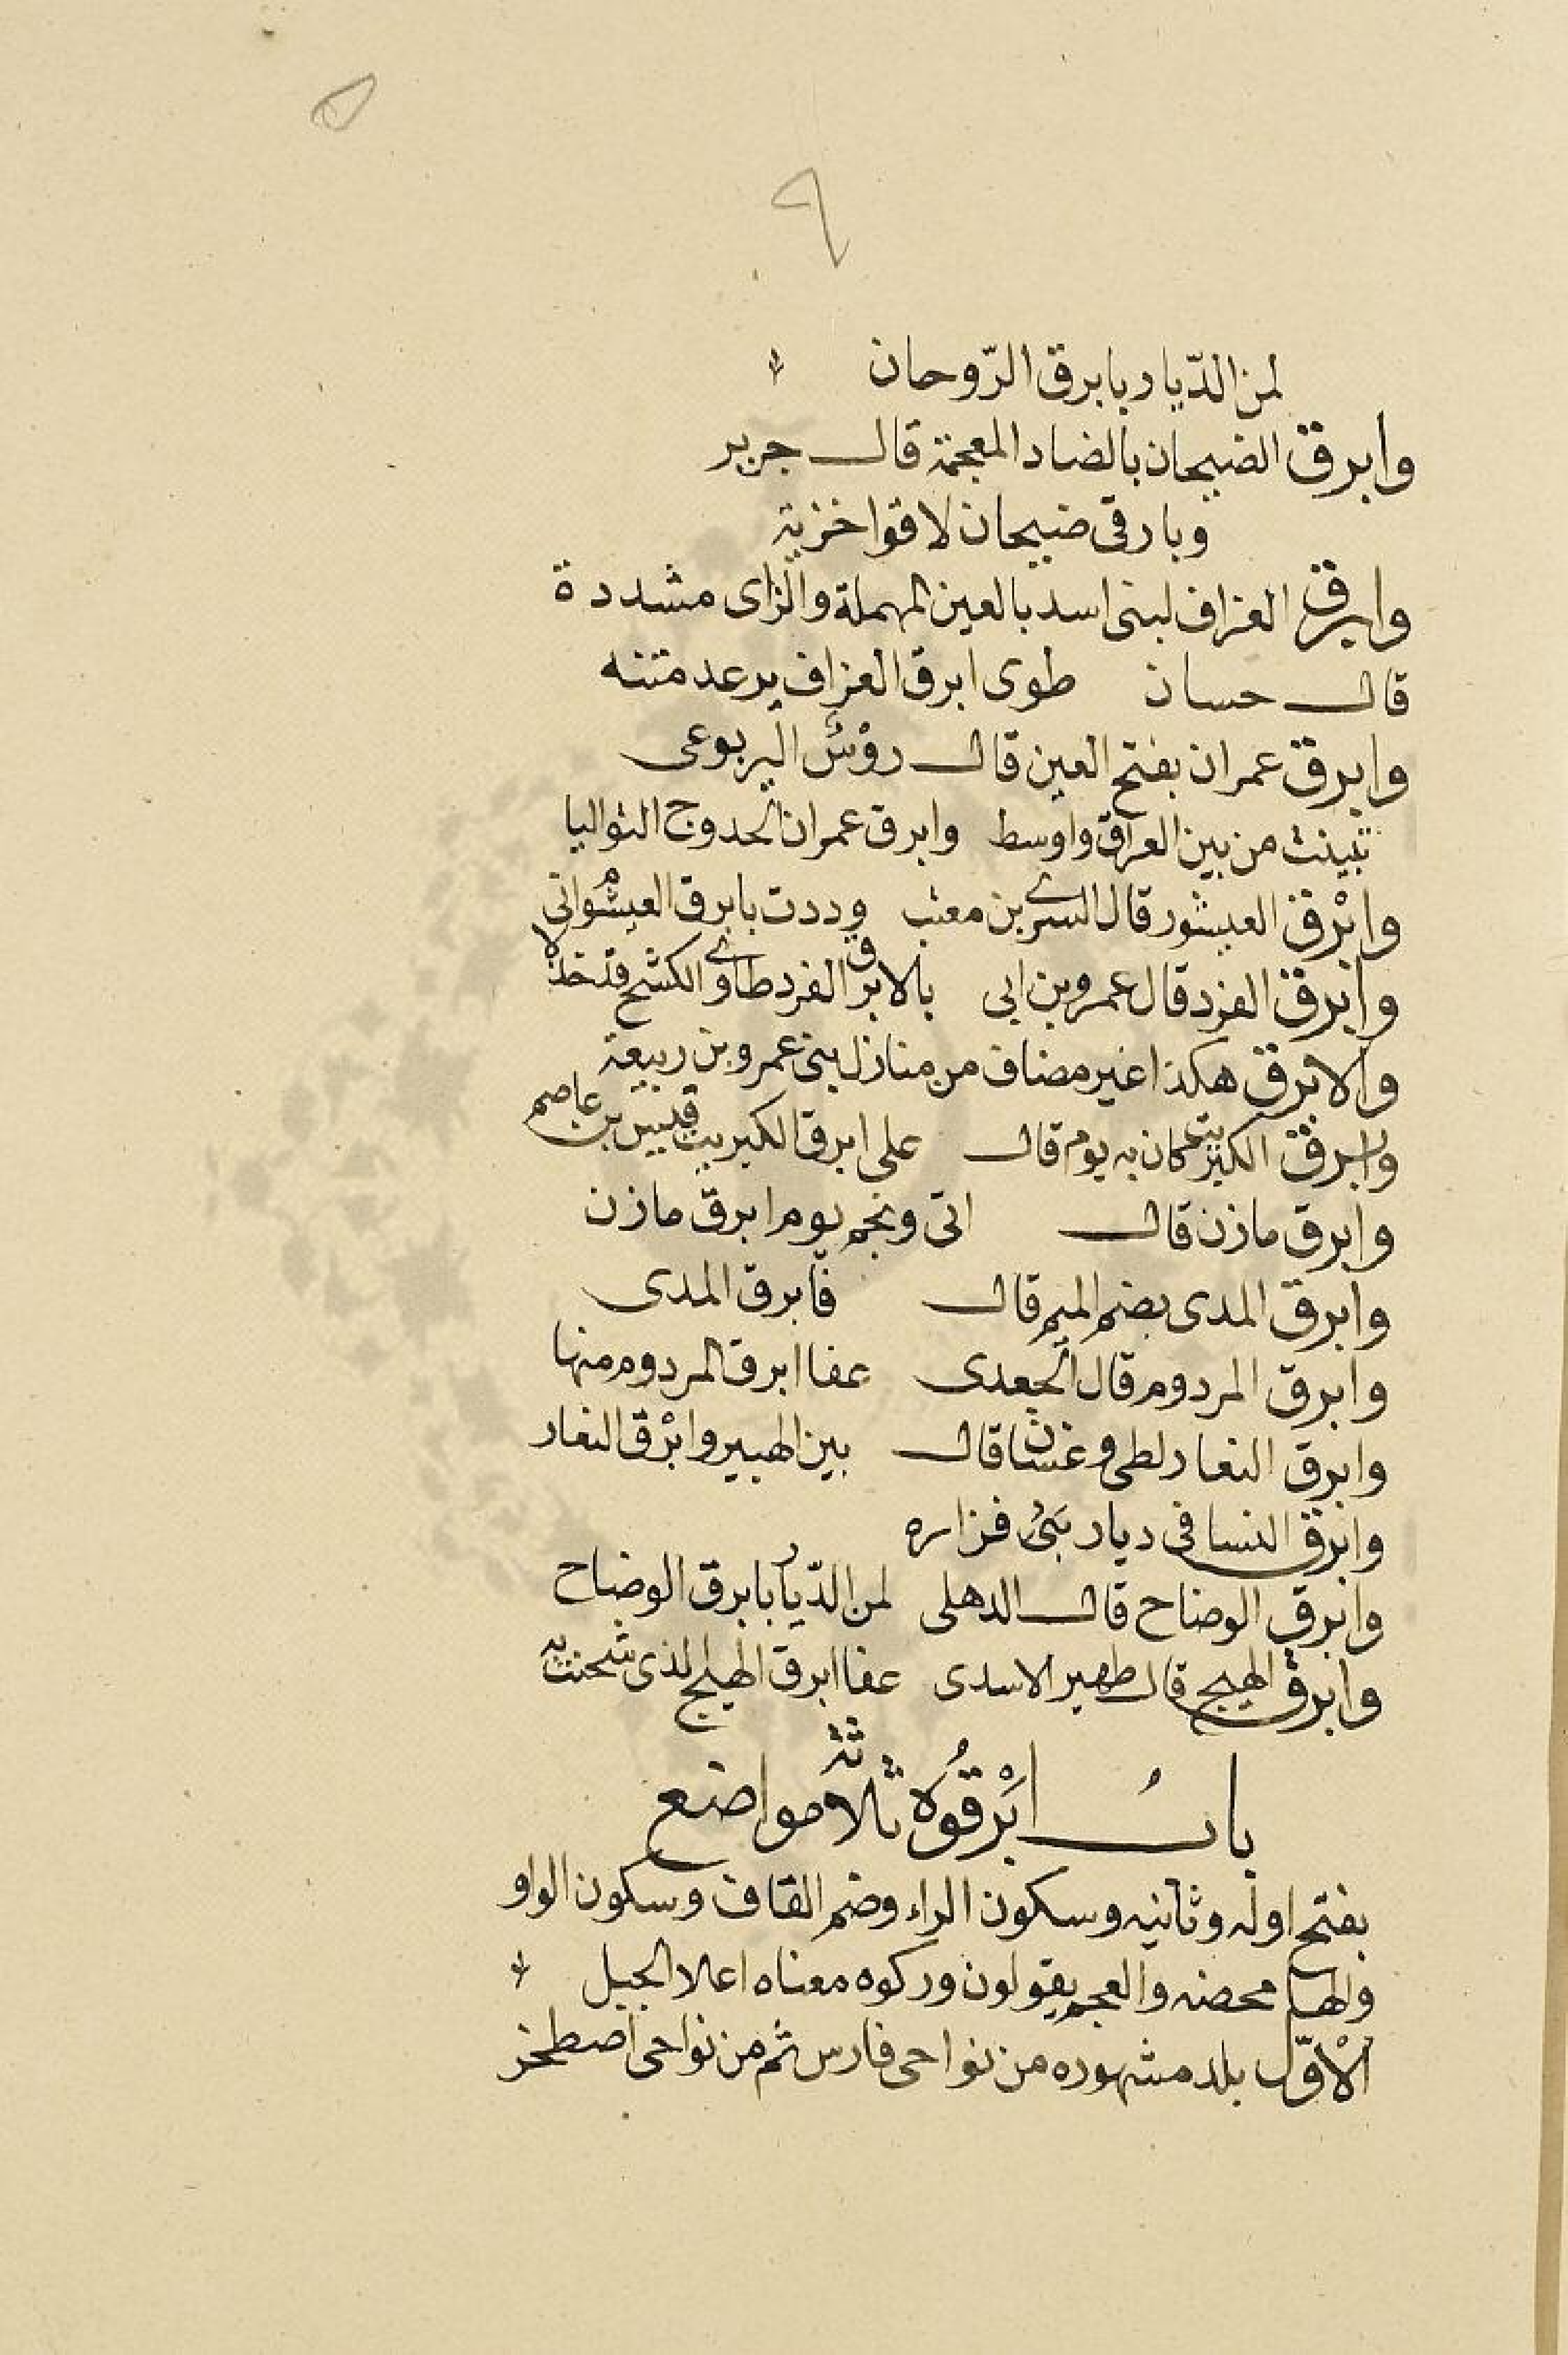 ٩
لمن الدّيار بابرق الرّوحان
وابرق الضيحان بالضاد المعجمة قال جرير
وبارقى ضيحان لاقوا خزية
وابرق العزاف لبنى اسد بالعين المهملة والزاى مشددة
قال حسان طوى ابرق العزاف يرعد متنه
وابرق عمران بفتح العين قال دؤس اليربوعى
تبينت من بين العراق واوسط وابرق عمران الحدوج التواليا
وابْرق العيشور قال السرى بن معتب وددت بابرق العيشوم انى
وابرق الفرد قال عمرو بن ابى بالابرق الفرد طاوى الكشح قد خذلا
والابرق هكذا غير مضاف من منازل بنى عمرو بن ربيعة
وابرق الكبريت كان به يوم قال على ابرق الكبريت قيس بن عاصم
وابرق مازن قال اتى ونجم يوم ابرق مازن
وابرق المدى بضم الميم قال فابرق المدى
وابرق المردوم قال الجعدى عفا ابرق المردوم منها
وابرق النعار لطى وغسان قال بين الهبير وابْرق النعار
وابرق النسا فى ديار بَنى فزاره
وابرق الوضاح قال الدهلى لمن الدّيار بابرق الوضاح
وابرق الهيج قال ظهير الاسدى عفا ابرق الهيج الذى شحنت به
بابُ ابَرْقُوْه ثلاثة مواضع
بفتح اوله وثانيه وسكون الراء وضم القاف وسكون الواو
والهاء محضه والعجم يقولون وركوه معناه اعلا الجبل
الاوّل بلد مشهوره من نواحى فارس ثم من نواحى اصطخر